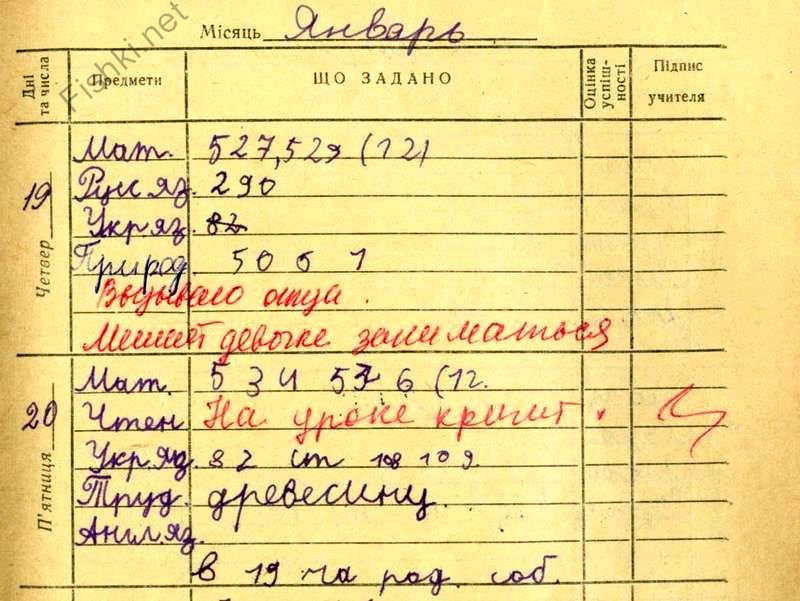 Fishki.net
Місяць Январь
Дні та числа Предмети ЩО ЗАДАНО Оцінка успіш- ності Підпис учителя
19 Четвер
Мат. 527,529 (12)
Рус яз. 290
Укр.яз. 82
Природ. 50 б 1
Вызываю отца.
Мешает девочке заниматься
20 П'ятниця
Мат. 534 53 6 (12.
Чтен На уроке кричит.
Укр.яз. 82 ст 108 109.
Труд. древесину.
Англ.яз.
в 19 ча род. соб.